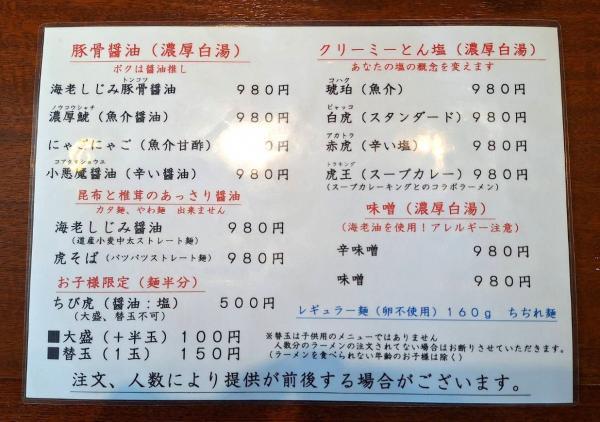 豚骨醤油（濃厚白湯）
ボクは醤油推し
トンコツ
海老しじみ豚骨醤油 980円
ノウコウシャチ
濃厚鯱（魚介醤油） 980円
にゃごにゃご（魚介甘酢） 980円
コアクマショウユ
小悪魔醤油（辛い醤油） 980円
昆布と椎茸のあっさり醤油
カタ麺、やわ麺 出来ません
海老しじみ醤油 980円
（道産小麦中太ストレート麺）
虎そば（パツパツストレート麺） 980円
お子様限定（麺半分）
ちび虎（醤油：塩） 500円
（大盛、替玉不可）
■大盛（＋半玉）100円
■替玉（1玉） 150円
クリーミーとん塩（濃厚白湯）
あなたの塩の概念を変えます
コハク
琥珀（魚介） 980円
ビャッコ
白虎（スタンダード） 980円
アカトラ
赤虎（辛い塩） 980円
トラキング
虎王（スープカレー） 980円
（スープカレーキングとのコラボラーメン）
味噌（濃厚白湯）
（海老油を使用！アレルギー注意）
辛味噌 980円
味噌 980円
レギュラー麺（卵不使用）160g ちぢれ麺
※替玉は子供用のメニューではありません
人数分のラーメンの注文されてない場合はお断りさせていただきます。
（ラーメンを食べられない年齢のお子様は除く）
注文、人数により提供が前後する場合がございます。